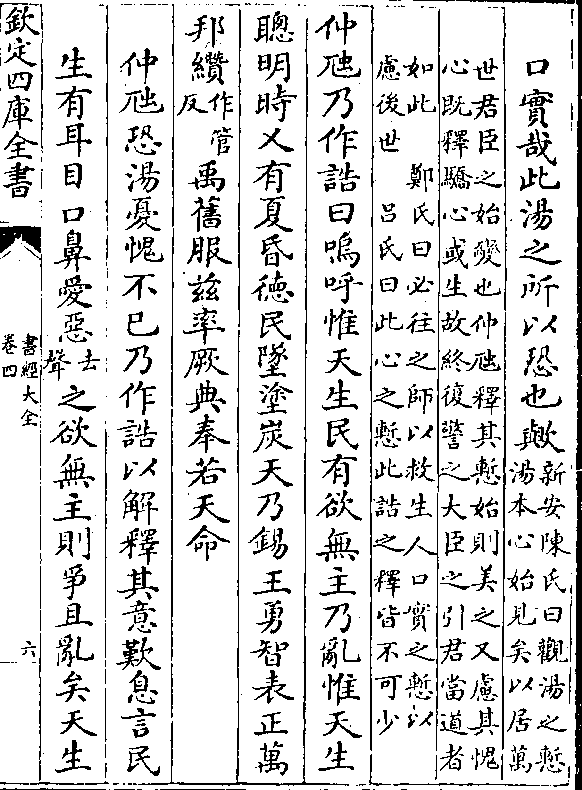 口實哉此湯之所以恐也歟
新安陳氏曰觀湯之慙
湯本心始見矣以居萬
世君臣之始變也仲虺釋其慙始則美之又慮其愧
心既釋驕心或生故終復警之大臣之引君當道者
如此　鄭氏曰必往之師以救生人口實之慙以
慮後世　呂氏曰此心之慙此誥之釋皆不可少
仲虺乃作誥曰嗚呼惟天生民有欲無主乃亂惟天生
聰明時乂有夏昏德民墜塗炭天乃錫王勇智表正萬
邦纘作管反禹舊服茲率厥典奉若天命
仲虺恐湯憂愧不已乃作誥以解釋其意歎息言民
生有耳目口鼻愛惡去聲之欲無主則爭且亂矣天生
欽定四庫全書
書經大全
卷四
六